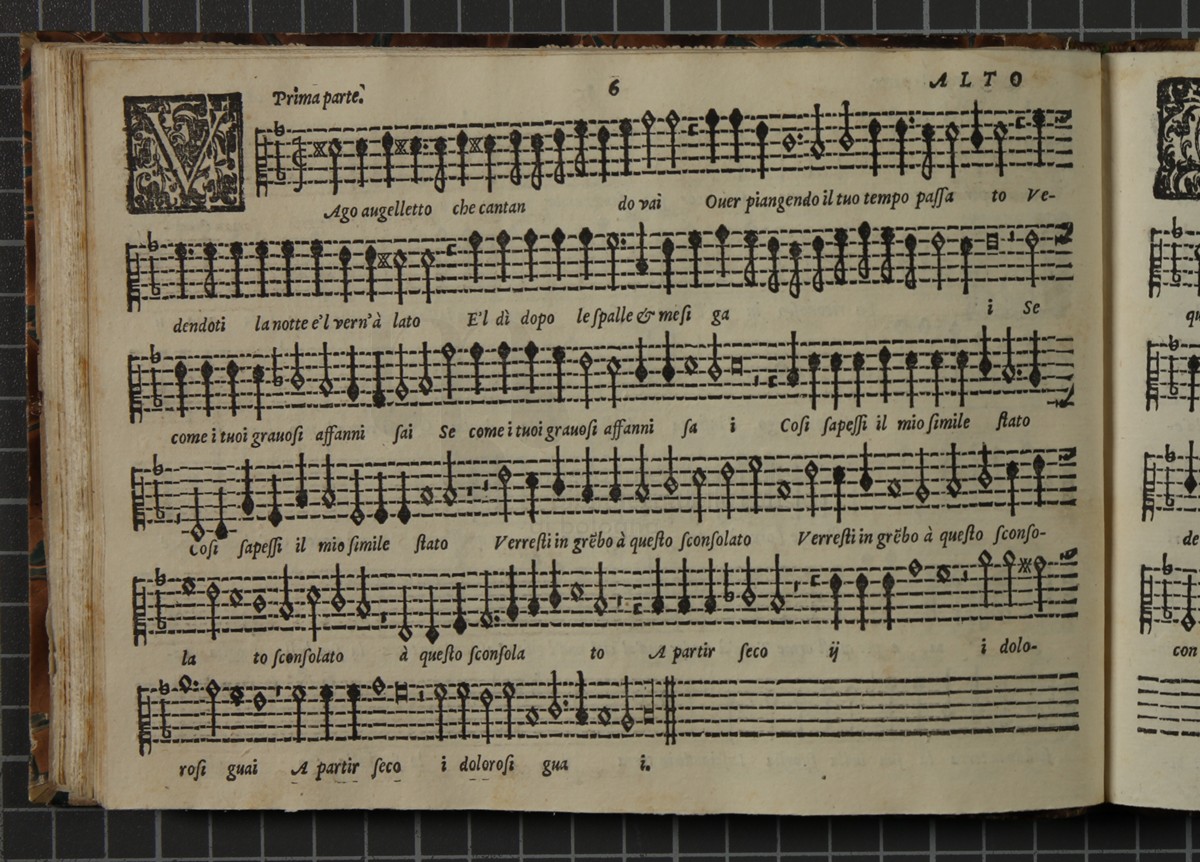 Prima parte. 6 ALTO
VAgo augelletto che cantan do vai Ouer piangendo il tuo tempo paſſa to Ve-
dendoti la notte e'l vern'à lato E'l dì dopo le ſpalle & meſi ga i Se
come i tuoi grauoſi affanni ſai Se come i tuoi grauoſi affanni ſa i Coſi ſapeſſi il mio ſimile ſtato
Coſi ſapeſſi il mio ſimile ſtato Verreſti in grẽbo à queſto ſconſolato Verreſti in grẽbo à queſto ſconſo-
la to ſconſolato à queſto ſconſola to A partir ſeco ij i dolo-
roſi guai A partir ſeco i doloroſi gua i.
qu
de
con